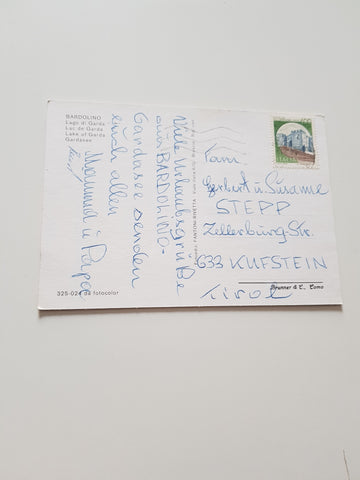 BARDOLINO
Lago di Garda
Lac de Garda
Lake of Garda
Gardasee
Viele Urlaubsgrüße
aus BARDOLINO-
Gardasee senden
euch allen
Mamma u Papa
ITALIA
Fam.
Herbert u. Susanne
STEPP
Zellerburg-Str.
633 KUFSTEIN
Tirol
325-024 da fotocolor
Brunner & C., Como